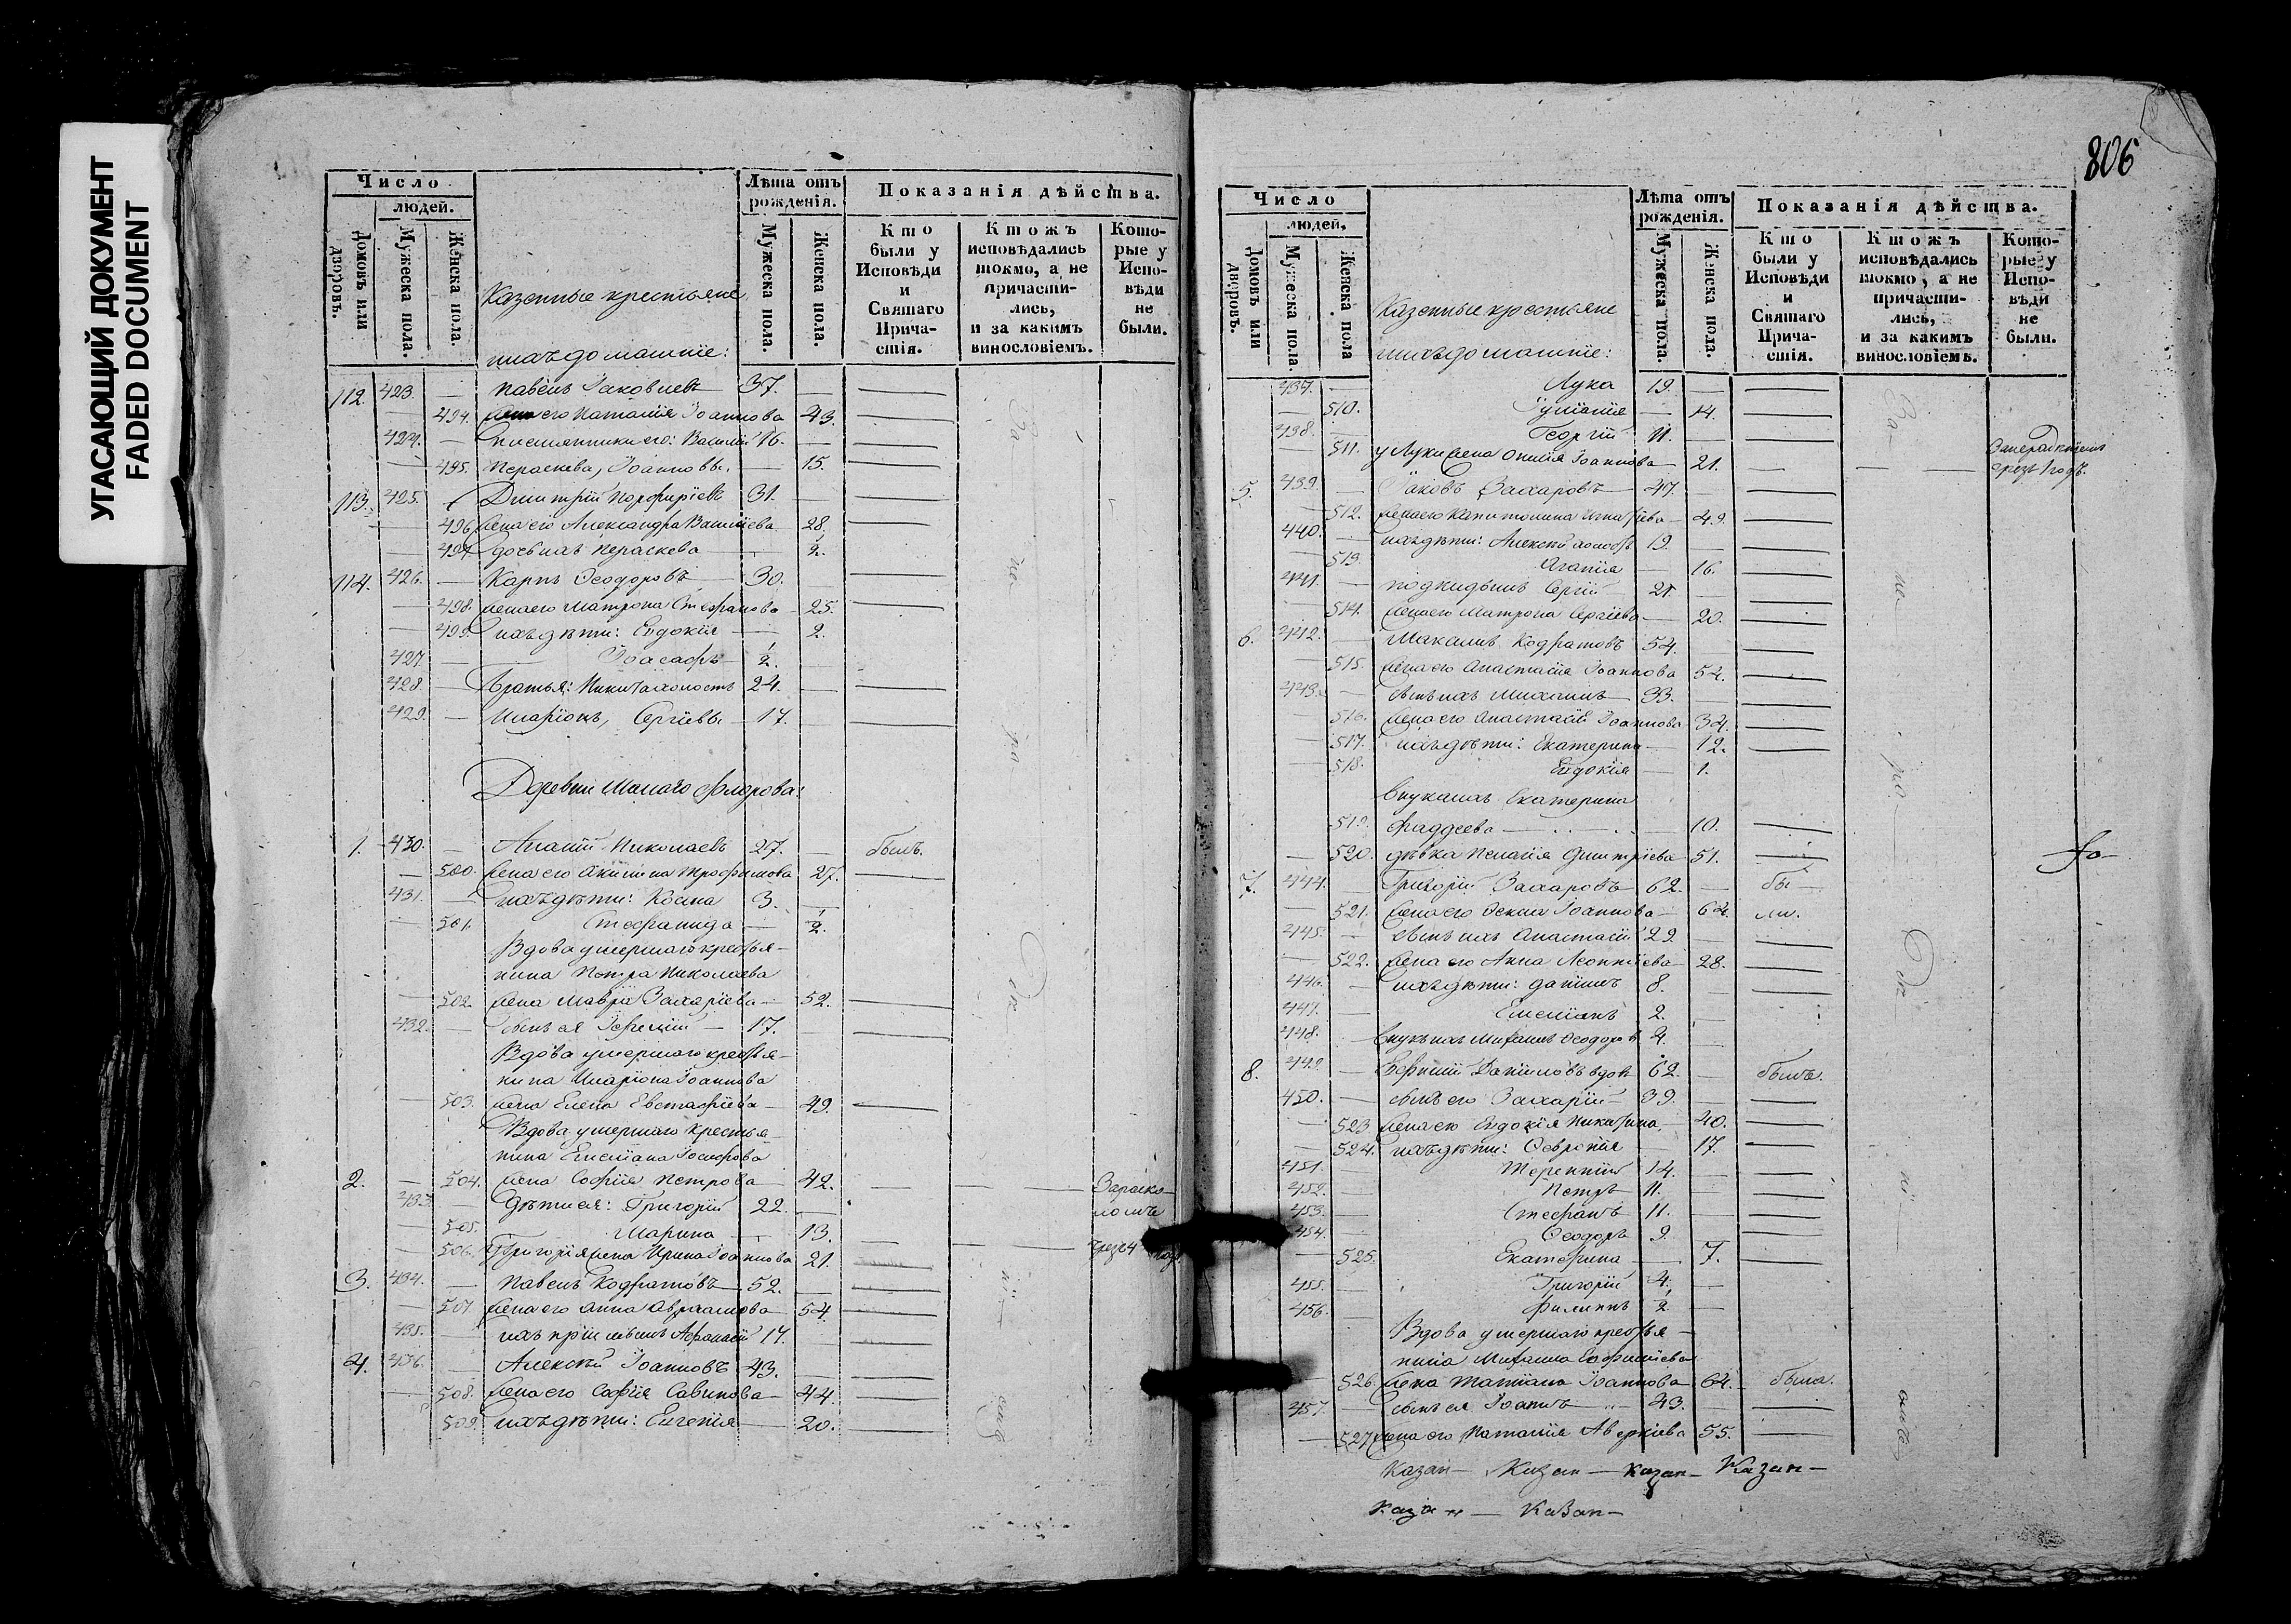 УГАСАЮЩИЙ ДОКУМЕНТ
FADED DOCUMENT
Число
людей.
Домовъ или дворовъ.
Мужеска пола.
Женска пола.
Казенные крестьяне
и ихъ домашніе:
Лѣта отъ рожденія.
Мужеска пола.
Женска пола.
Показанія дѣйства.
Кто были у Исповѣди и Святаго Причастія.
Ктожъ исповѣдались токмо, а не причастились, и за какимъ винословіемъ.
Которые у Исповѣди не были.
112. 423. — Павелъ Іаковлевъ 37. —
— 494. жена его Наталія Іоаннова 43.
424. — племянники его: Василій 16. —
— 495. Параскева, Іоанновы. — 15.
113. 425. — Дмитрій Порфиріевъ 31. —
— 496. жена его Александра Васильева 28.
— 497. дочь ихъ Параскева — 1/2.
114. 426. — Карпъ Ѳеодоровъ 30. —
— 498. жена его Матрона Стефанова 25.
— 499. ихъ дѣти: Евдокія — 2.
427. — Іоасафъ 1/2.
428. — Братья: Никита холостъ 24. —
429. — Иларіонъ, Сергіевы 17. —
Деревни Малаго Фларова:
1. 430. — Ананій Николаевъ 27. — былъ.
— 500. жена его Акилина Трофимова 27.
431. — ихъ дѣти: Косма 3. —
501. Стефанида — 1/2.
Вдова умершаго крестья-
нина Петра Николаева
— 502. жена Мавра Захаріева — 52.
432. — сынъ ея Іеремій — 17.
Вдова умершаго крестья-
нина Иларіона Іоаннова
— 503. жена Елена Евстафіева — 49.
Вдова умершаго крестья-
нина Емеліана Іосифова
2. — 504. жена Софія Петрова — 42. Зараско-
433. — дѣти ея: Григорій 22. — ломъ
— 505. Марина — 13.
— 506. у Григорія жена Ирина Іоаннова 21.
3. 434. — Павелъ Кодратовъ 52. —
— 507. жена его Анна Авраамова 54.
435. — ихъ пріемышъ Афанасій 17.
4. 436. — Алексѣй Іоанновъ 43. —
— 508. жена его Софія Савинова 44.
509. ихъ дѣти: Евгенія — 20.
806
Число
людей.
Домовъ или дворовъ.
Мужеска пола
Женска пола
Казенные крестьяне
и ихъ домашніе:
Лѣта отъ рожденія.
Мужеска пола.
Женска пола.
Показанія дѣйства.
Кто были у Исповѣди и Святаго Причастія.
Ктожъ исповѣдались токмо, а не причастились, и за какимъ винословіемъ.
Которые у Исповѣди не были.
437. — Лука 19. —
— 510. Іуліанія — 14.
438. — Георгій 11. —
— 511. у Луки жена Іоаннова — 21.
5. 439. — Іаковъ Захаровъ 47. —
— 512. жена его Капитолина Игнатіева 49.
440. — ихъ дѣти: Алексѣй холостъ 19. —
— 513. Агапія — 16.
441. — подкидышъ Сергій 21. —
— 514. жена его Матрона Сергіева 20.
6. 442. — Кодратовъ 54.
— 515. жена его Анастасія Іоаннова 54.
443. — сынъ ихъ Михаилъ 33.
— 516. жена его Анастасія Іоаннова 34.
— 517. ихъ дѣти: Екатерина — 12.
— 518. Евдокія — 1.
внука ихъ Екатерина
519. Фаддеева — 10.
— 520. дѣвка Пелагія Дмитріева 51.
7. 444. — Григорій Захаровъ 62. — бы-
— 521. жена его Іоаннова — 64. ли.
445. — сынъ ихъ Анастасій 29. —
— 522. жена его Анна Леонтіева 28.
446. — ихъ дѣти: Даніилъ 8. —
447. — Емеліанъ 2. —
448. внукъ ихъ Михаилъ Ѳеодоровъ 4. —
8. 449. — Даніиловъ вдовъ 62. — былъ.
450. — сынъ его Захарій 39. —
— 523. жена его Евдокія 40.
— 524. ихъ дѣти: Февронія — 17.
451. — Терентій 14. —
452. — Петръ 11. —
453. — Стефанъ 11. —
454. — Ѳеодоръ 9. —
— 525. Екатерина — 7.
455. Григорій 4. —
456. — Филиппъ 1/2 —
Вдова умершаго крестья-
нина Михаила Евфиміева
— 526. жена Татіана Іоаннова 64. была.
457. — сынъ ея Іоаннъ 43. —
— 527. жена его Наталія Аверкіева 55.
Казан- Казан- Казан- Казан-
Казан- Казан-